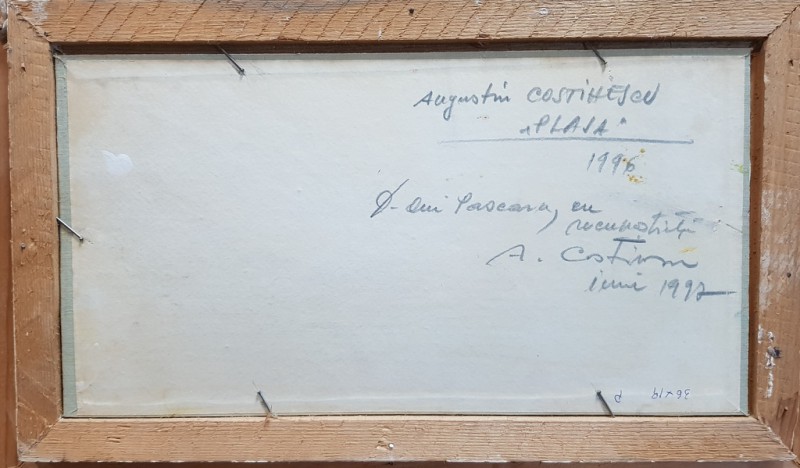 Augustin COSTINESCU
„PLAJA"
1996
D-nei Pascaru, cu
recunoștință
A. Costinescu
iunie 1997
P 36x19